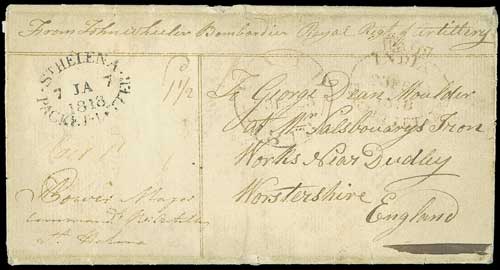 From John Wheeler Bombardier Royal Regt of Artillery
ST HELENA
7 JA 7
1818
PACKET LETTER
d
1 1/2
INDI
To George Dean Moulder
at Mr Salsbouarys Iron
Works Near Dudley
Worstershire
England
Power Major
Command Rl Artillery
St Helena